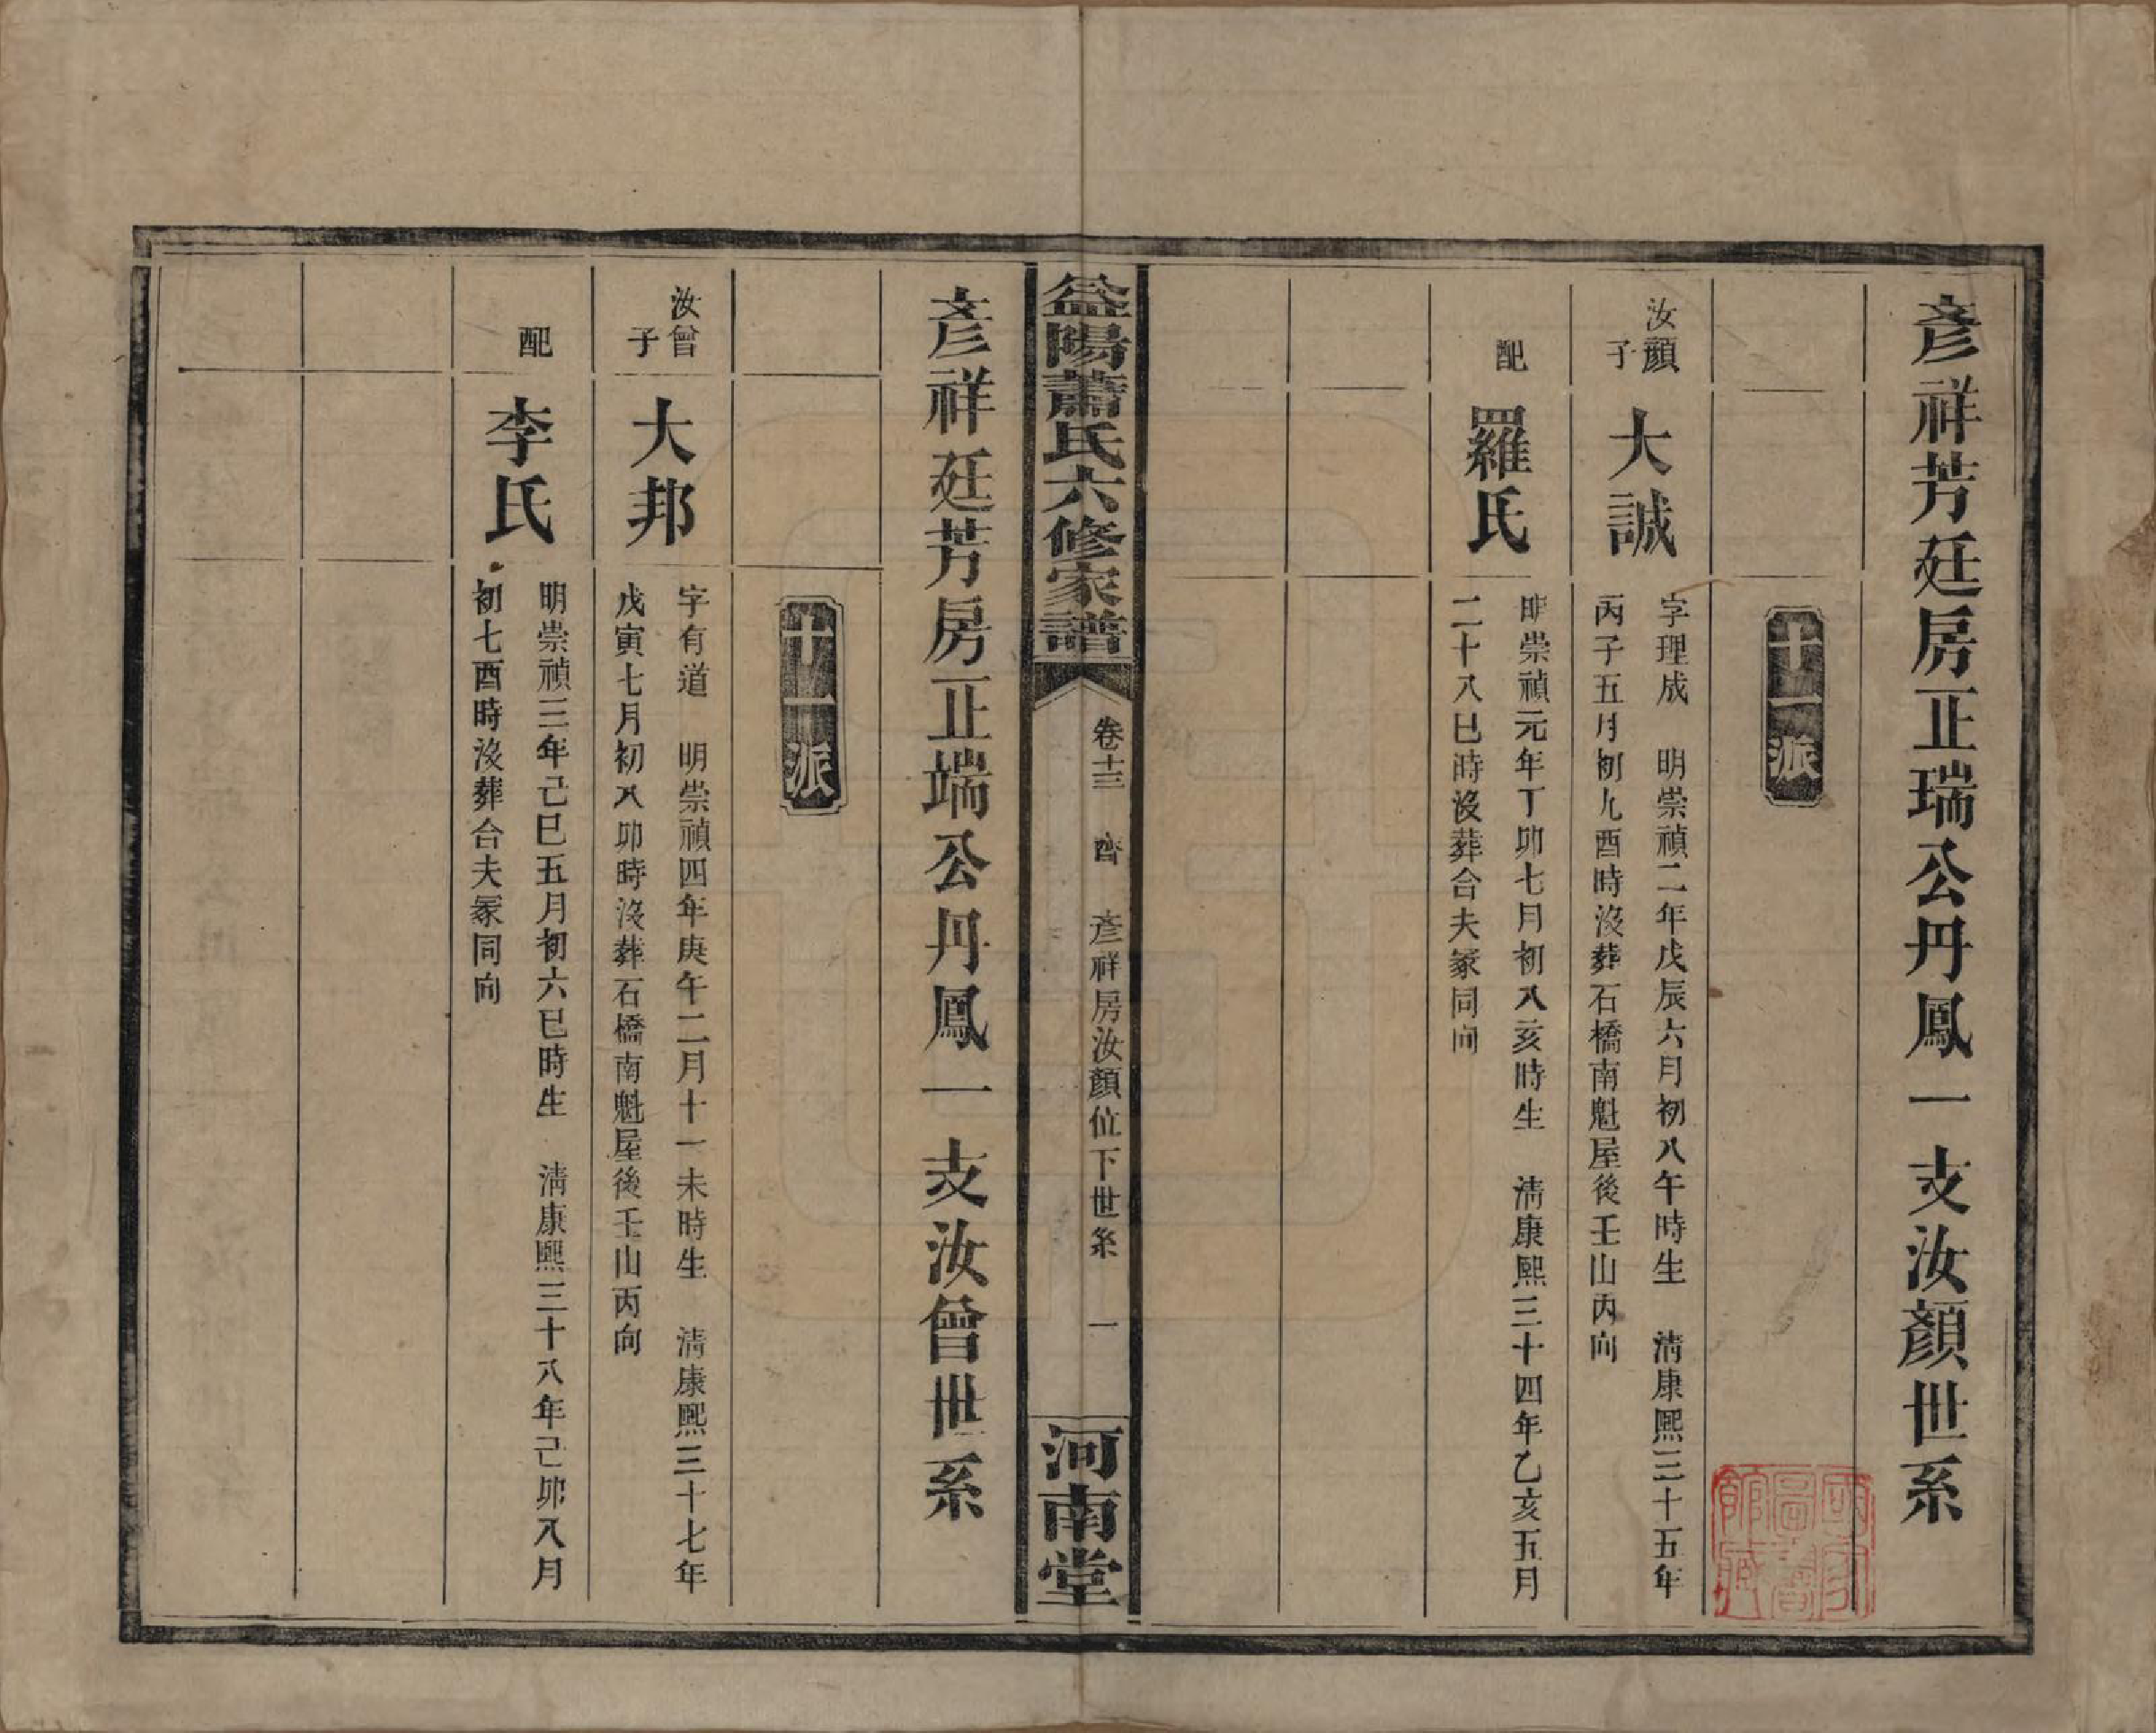 彥祥芳廷房正瑞公丹鳳一支汝顏世系
十一派
汝顏
子
大誠
字理成 明崇禎二年戊辰六月初八午時生 清康熙三十五年
丙子五月初九酉時沒葬石橋南魁屋後壬山丙向
配
羅氏
明崇禎元年丁卯七月初八亥時生 清康熙三十四年乙亥五月
二十八巳時沒葬合夫冢同向
國家圖書館藏
益陽蕭氏六修家譜
卷十三 齊 彥祥房汝顏位下世系 一
河南堂
彥祥廷芳房正端公丹鳳一支汝曾世系
十一派
汝曾
子
大邦
字有道 明崇禎四年庚午二月十一未時生 清康熙三十七年
戊寅七月初八卯時沒葬石橋南魁屋後壬山丙向
配
李氏
明崇禎三年己巳五月初六巳時生 清康熙三十八年己卯八月
初七酉時沒葬合夫冢同向